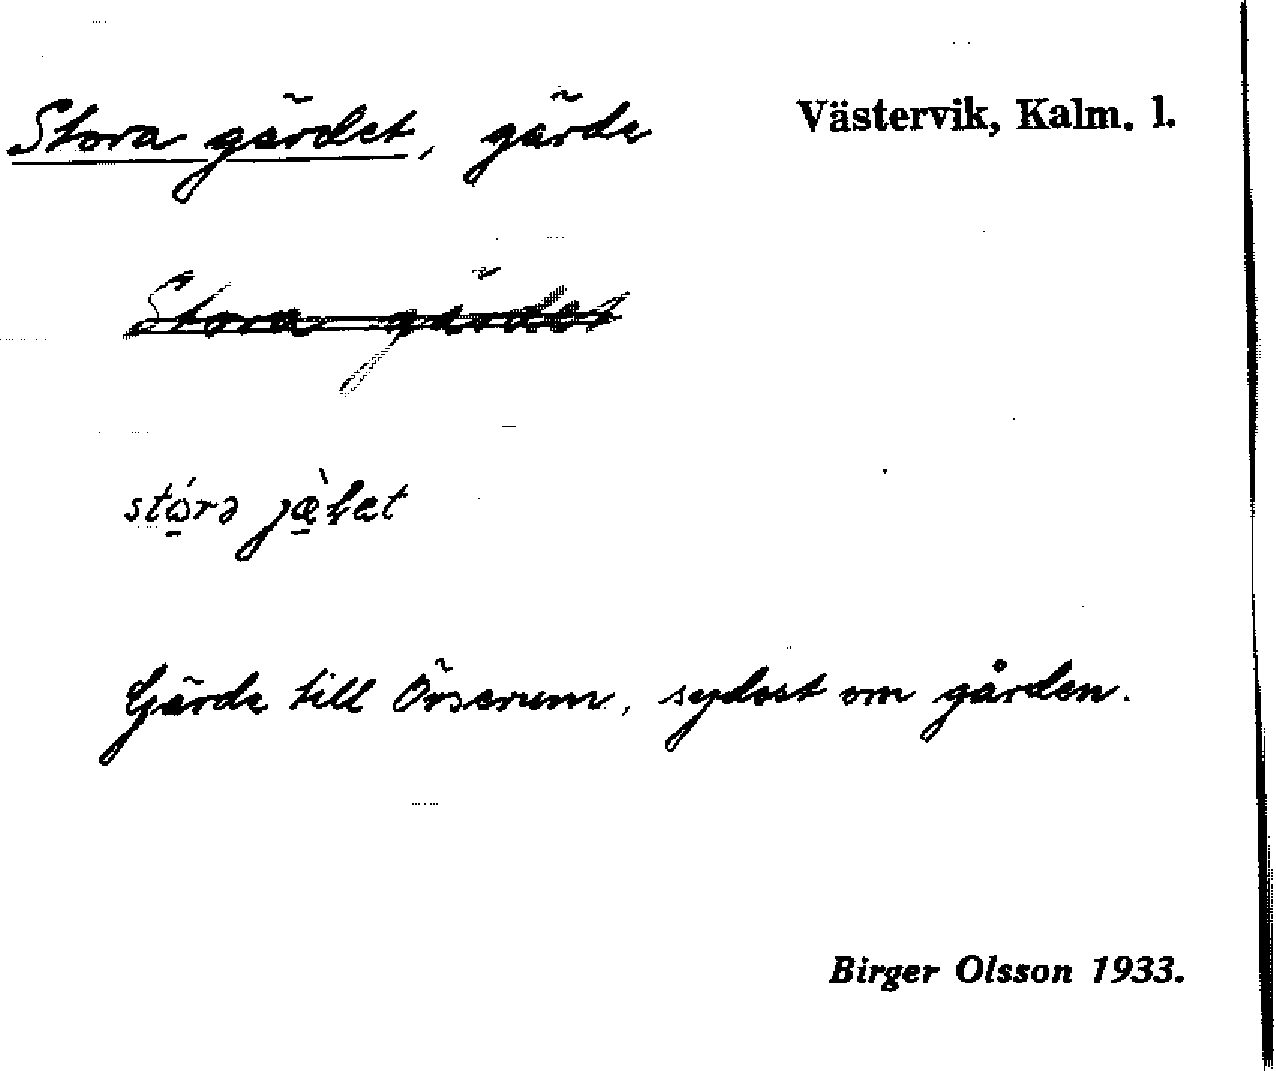 Stora gärdet, gärde Västervik, Kalm. l.
Stora gärdet
Gärde till Övserum, sydost om gården.
Birger Olsson 1933.